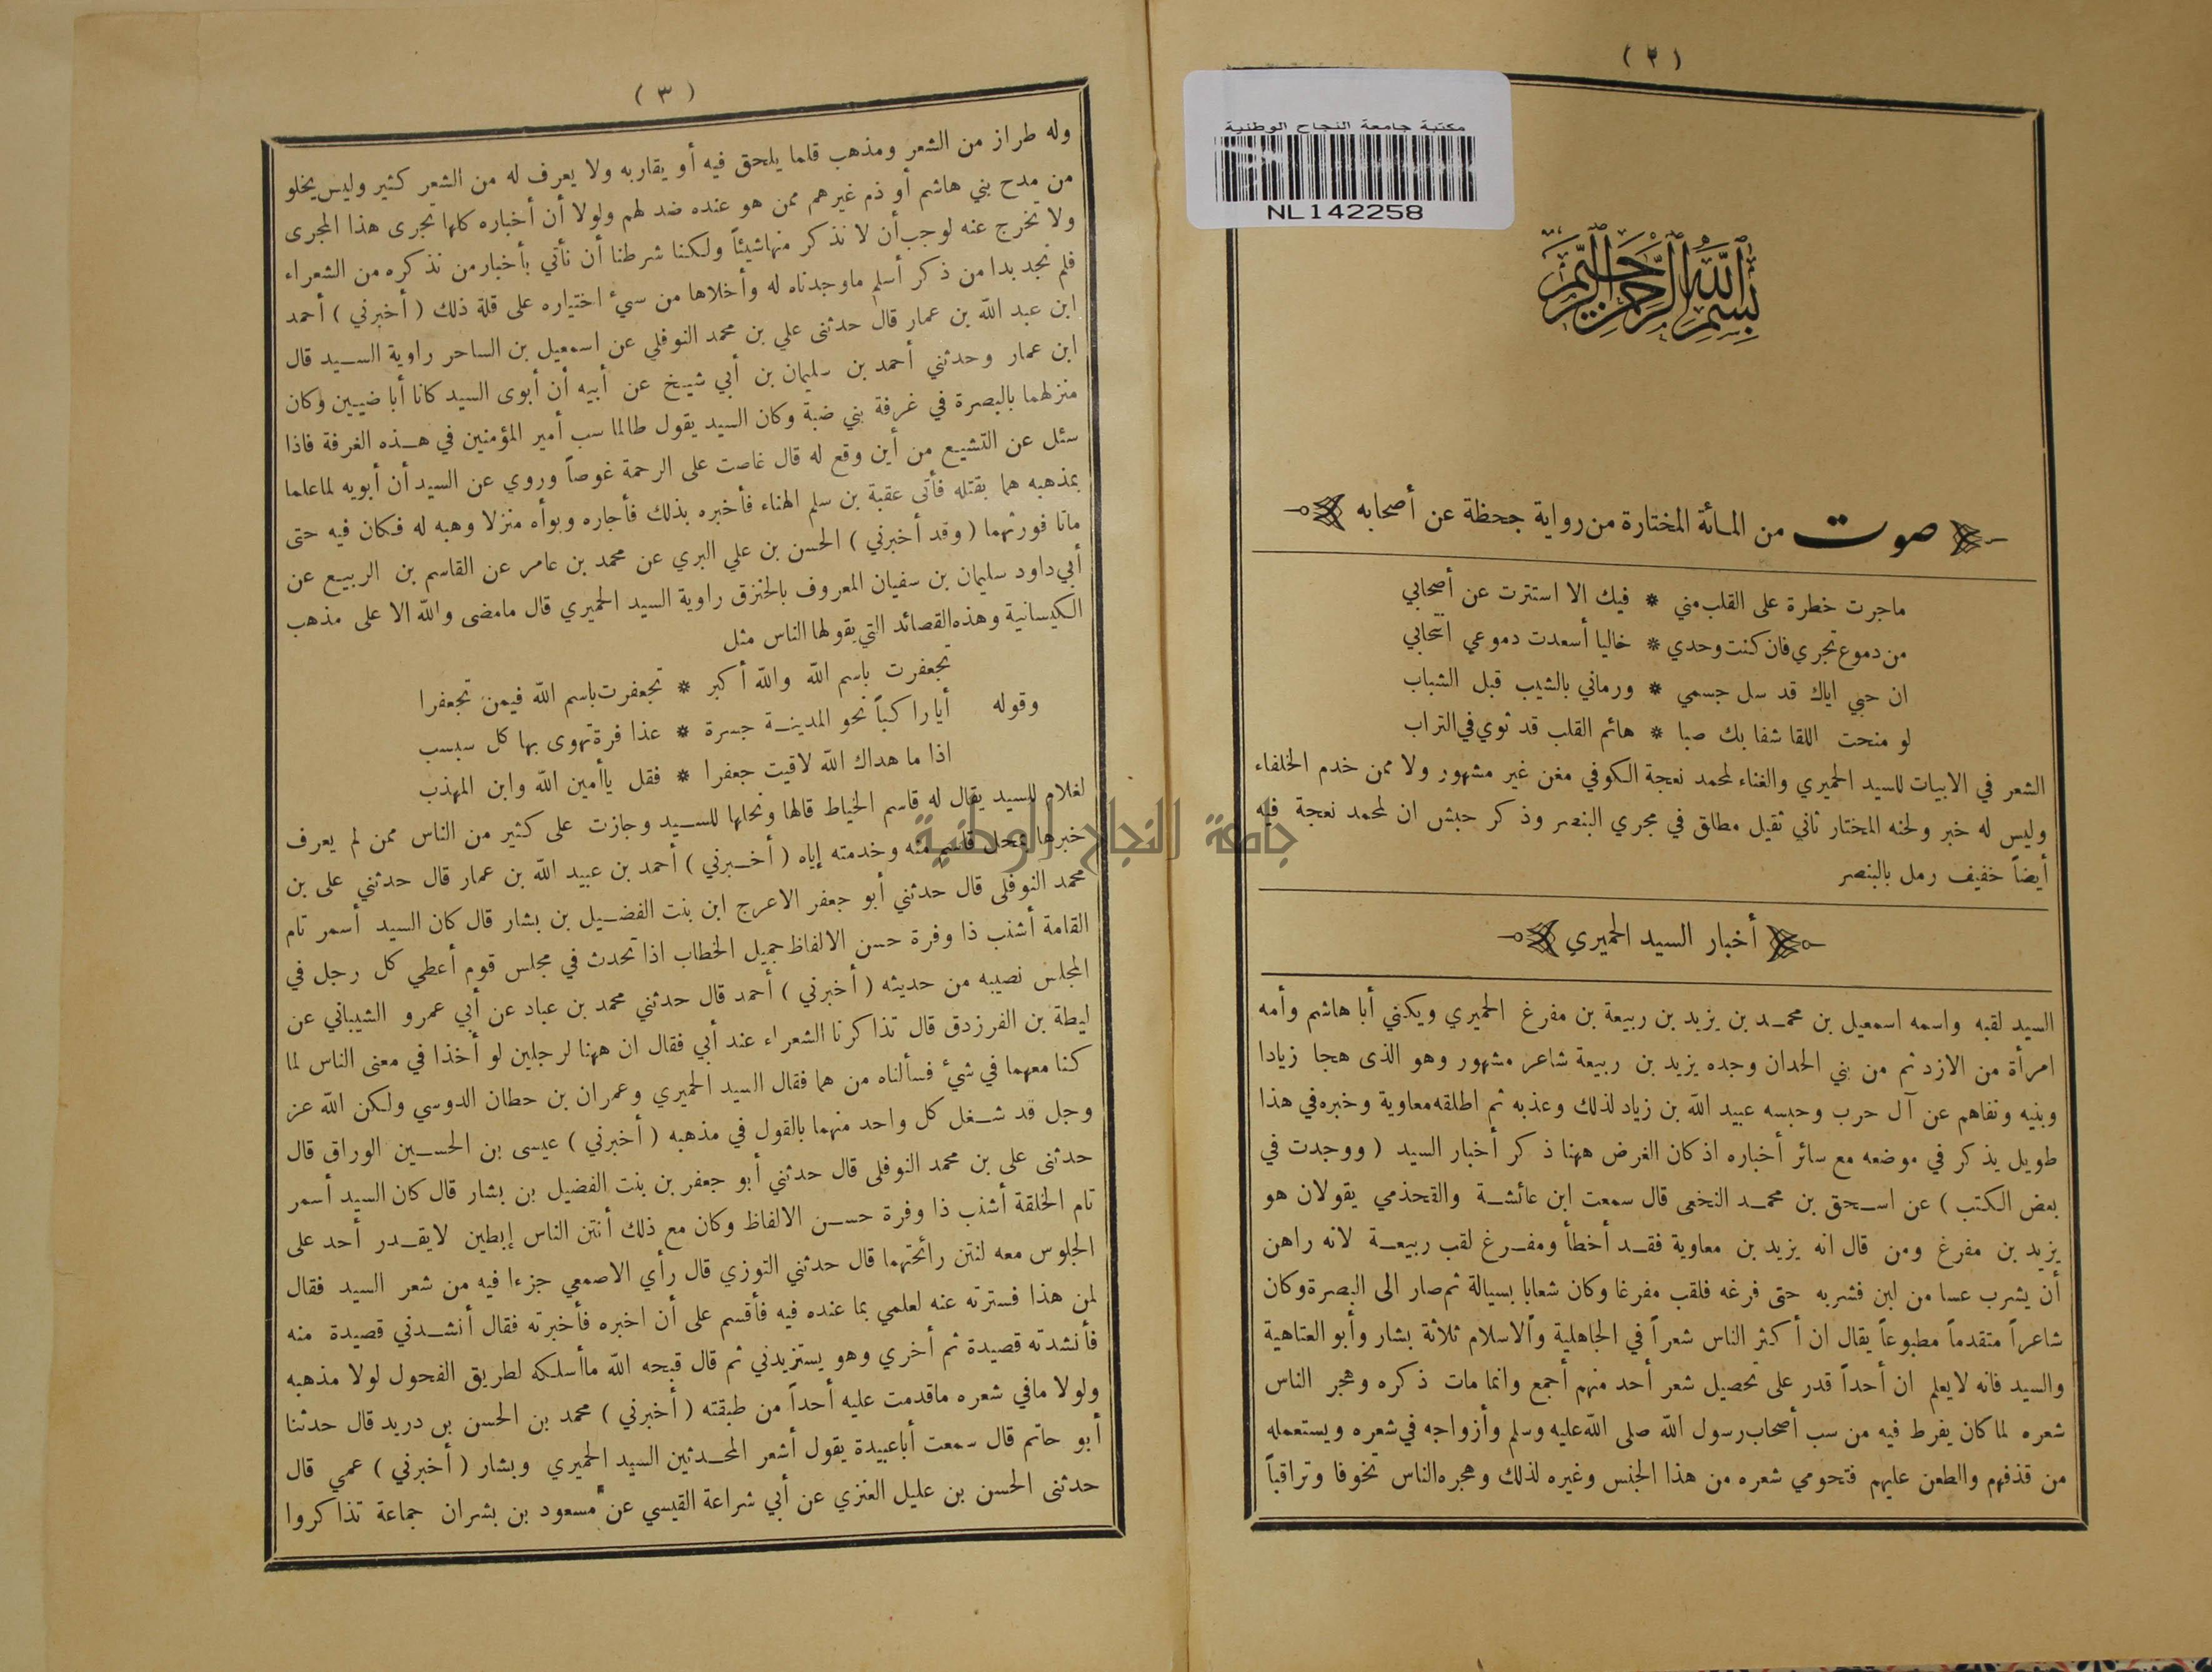 ( ٢ )
مكتبة جامعة النجاح الوطنية
NL142258
بسم الله الرحمن الرحيم
صوت من المائة المختارة من رواية جحظة عن أصحابه
ماجرت خطرة على القلب مني * فيك الا استترت عن أصحابي
من دموع تجري فان كنت وحدي * خاليا أسعدت دموعي انتحابي
ان حبي اياك قد سل جسمي * ورماني بالشيب قبل الشباب
لو منحت اللقا شفا بك صبا * هائم القلب قد ثوي في التراب
الشعر في الابيات للسيد الحميري والغناء لمحمد نعجة الكوفي مغن غير مشهور ولا ممن خدم الخلفاء
وليس له خبر ولحنه المختار ثاني ثقيل مطلق في مجري البنصر وذكر حبش ان لمحمد نعجة فيه
أيضاً خفيف رمل بالبنصر
أخبار السيد الحميري
السيد لقبه واسمه اسمعيل بن محمد بن يزيد بن ربيعة بن مفرغ الحميري ويكني أبا هاشم وأمه
امرأة من الازد ثم من بني الحدان وجده يزيد بن ربيعة شاعر مشهور وهو الذى هجا زيادا
وبنيه ونفاهم عن آل حرب وحبسه عبيد الله بن زياد لذلك وعذبه ثم اطلقه معاوية وخبره في هذا
طويل يذكر في موضعه مع سائر أخباره اذ كان الغرض ههنا ذكر أخبار السيد ( ووجدت في
بعض الكتب ) عن اسحق بن محمد النخعى قال سمعت ابن عائشة والقحذمي يقولان هو
يزيد بن مفرغ ومن قال انه يزيد بن معاوية فقد أخطأ ومفرغ لقب ربيعة لانه راهن
أن يشرب عسا من لبن فشربه حتى فرغه فلقب مفرغا وكان شعابا بسيالة ثم صار الى البصرة وكان
شاعراً متقدماً مطبوعاً يقال ان أكثر الناس شعراً في الجاهلية والاسلام ثلاثة بشار وأبو العتاهية
والسيد فانه لايعلم ان أحداً قدر على تحصيل شعر أحد منهم أجمع وانما مات ذكره وهجر الناس
شعره لما كان يفرط فيه من سب أصحاب رسول الله صلى الله عليه وسلم وأزواجه في شعره ويستعمله
من قذفهم والطعن عليهم فتحومي شعره من هذا الجنس وغيره لذلك وهجره الناس تخوفا وتراقباً
( ٣ )
وله طراز من الشعر ومذهب قلما يلحق فيه أو يقاربه ولا يعرف له من الشعر كثير وليس يخلو
من مدح بني هاشم أو ذم غيرهم ممن هو عنده ضد لهم ولولا أن أخباره كلها تجرى هذا المجرى
ولا تخرج عنه لوجب أن لا نذكر منها شيئاً ولكنا شرطنا أن نأتي بأخبار من نذكره من الشعراء
فلم نجد بدا من ذكر أسلم ماوجدناه له وأخلاها من سيء اختياره على قلة ذلك ( أخبرني ) أحمد
ابن عبد الله بن عمار قال حدثنى علي بن محمد النوفلي عن اسمعيل بن الساحر راوية السيد قال
ابن عمار وحدثني أحمد بن سليمان بن أبي شيخ عن أبيه أن أبوى السيد كانا أباضيين وكان
منزلهما بالبصرة في غرفة بني ضبة وكان السيد يقول طالما سب أمير المؤمنين في هذه الغرفة فاذا
سئل عن التشيع من أين وقع له قال غاصت على الرحمة غوصاً وروي عن السيد أن أبويه لما علما
بمذهبه هما بقتله فأتى عقبة بن سلم الهناء فأخبره بذلك فأجاره وبوأه منزلا وهبه له فكان فيه حتى
ماتا فورثهما ( وقد أخبرني ) الحسن بن علي البري عن محمد بن عامر عن القاسم بن الربيع عن
أبي داود سليمان بن سفيان المعروف بالحنزق راوية السيد الحميري قال مامضى والله الا على مذهب
الكيسانية وهذه القصائد التي يقولها الناس مثل
تجعفرت باسم الله والله أكبر * تجعفرت باسم الله فيمن تجعفرا
وقوله أيا راكباً نحو المدينة جسرة * عذا فرة تهوى بها كل سبسب
اذا ما هداك الله لاقيت جعفرا * فقل ياأمين الله وابن المهذب
لغلام للسيد يقال له قاسم الخياط قالها ونحلها للسيد وجازت على كثير من الناس ممن لم يعرف
خبرها بمحل قاسم منه وخدمته إياه ( أخبرني ) أحمد بن عبيد الله بن عمار قال حدثني على بن
محمد النوفلى قال حدثني أبو جعفر الاعرج ابن بنت الفضيل بن بشار قال كان السيد أسمر تام
القامة أشنب ذا وفرة حسن الالفاظ جميل الخطاب اذا تحدث في مجلس قوم أعطي كل رجل في
المجلس نصيبه من حديثه ( أخبرني ) أحمد قال حدثني محمد بن عباد عن أبي عمرو الشيباني عن
ليطة بن الفرزدق قال تذاكرنا الشعراء عند أبي فقال ان ههنا لرجلين لو أخذا في معنى الناس لما
كنا معهما في شيء فسألناه من هما فقال السيد الحميري وعمران بن حطان الدوسي ولكن الله عز
وجل قد شغل كل واحد منهما بالقول في مذهبه ( أخبرني ) عيسى بن الحسين الوراق قال
حدثنى على بن محمد النوفلى قال حدثني أبو جعفر بن بنت الفضيل بن بشار قال كان السيد أسمر
تام الخلقة أشنب ذا وفرة حسن الالفاظ وكان مع ذلك أنتن الناس إبطين لايقدر أحد على
الجلوس معه لنتن رائحتهما قال حدثني التوزي قال رأي الاصمعي جزءا فيه من شعر السيد فقال
لمن هذا فسترته عنه لعلمي بما عنده فيه فأقسم على أن اخبره فأخبرته فقال أنشدني قصيدة منه
فأنشدته قصيدة ثم أخري وهو يستزيدني ثم قال قبحه الله ماأسلكه لطريق الفحول لولا مذهبه
ولولا مافي شعره ماقدمت عليه أحداً من طبقته ( أخبرني ) محمد بن الحسن بن دريد قال حدثنا
أبو حاتم قال سمعت أباعبيدة يقول أشعر المحدثين السيد الحميري وبشار ( أخبرني ) عمي قال
حدثنى الحسن بن عليل العنزي عن أبي شراعة القيسي عن مسعود بن بشران جماعة تذاكروا
جامعة النجاح الوطنية